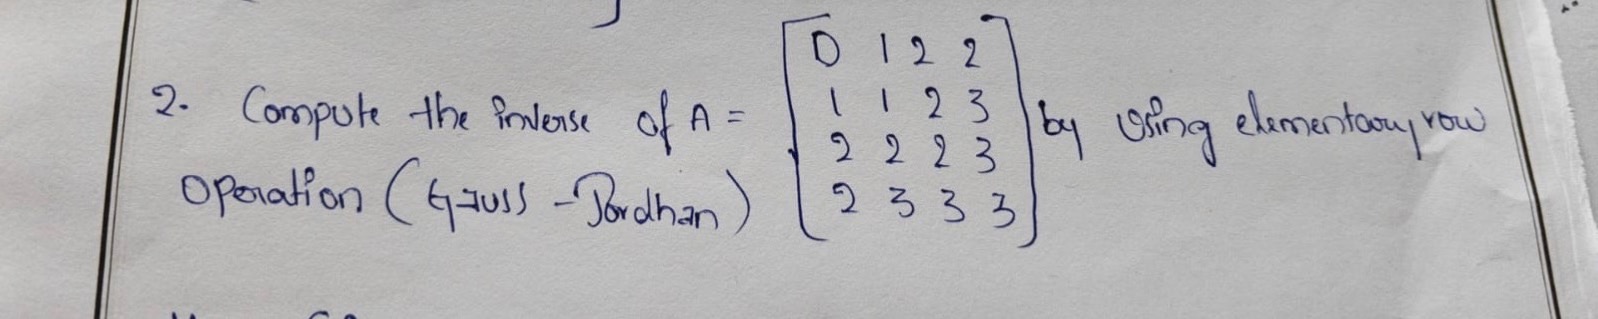 0 1 2 2
2. Compute the inverse of A = 1 1 2 3 by using elementary row
2 2 2 3
operation (Gauss - Jordhan) 2 3 3 3